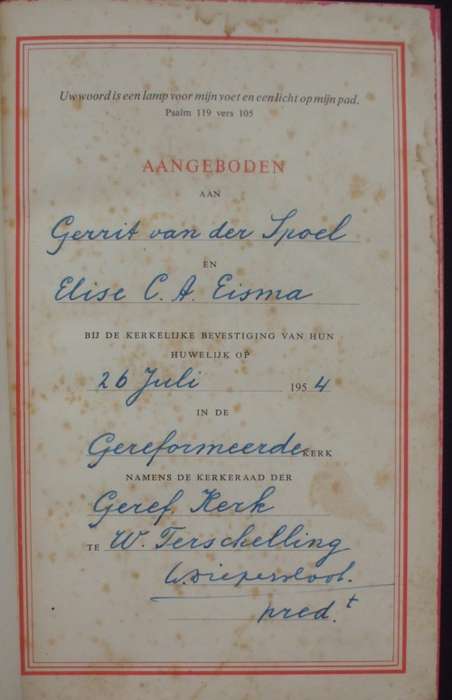 Uw woord is een lamp voor mijn voet en een licht op mijn pad.
Psalm 119 vers 105
AANGEBODEN
AAN
Gerrit van der Spoel
EN
Elise C. A. Eisma
BIJ DE KERKELIJKE BEVESTIGING VAN HUN
HUWELIJK OP
26 Juli 1954
IN DE
Gereformeerde KERK
NAMENS DE KERKERAAD DER
Geref. Kerk
TE W. Terschelling
pred.t